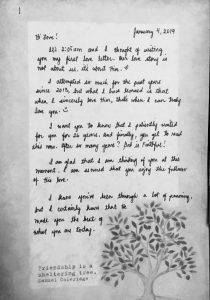 January 4, 2019
Hi Love!
It's 2:05am and I thought of writing
you my first love letter. Our love story is
not about us, it's about Him.
I attempted so much for the past years
since 2013, but what I have learned is that
when I sincerely love Him, that's when I can truly
love you.
I want you to know that I patiently waited
for you for years, and finally, you get to read
this now. After so many years? God is Faithful!
I am glad that I am thinking of you at this
moment. I am assured that you enjoy the fullness
of His love.
I know you've been through a lot of pruning,
but I certainly know that
made you the best of
what you are today.
Friendship is a
sheltering tree.
Samuel Coleridge